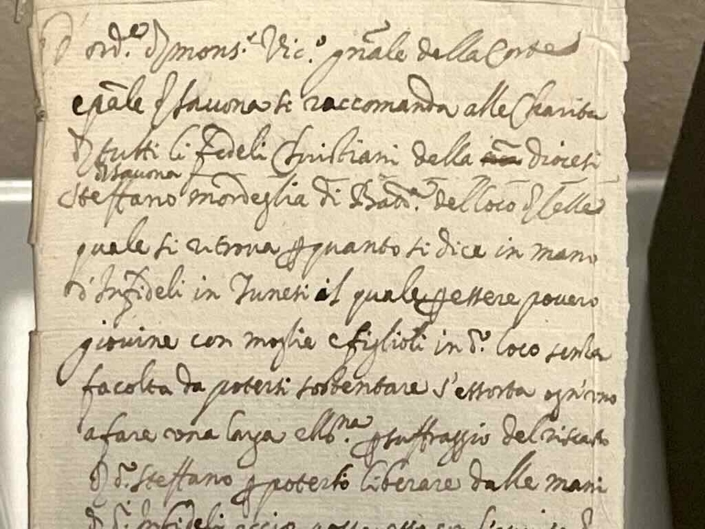 D' ord.e di mons.r Vic.o gñale della Corte
epãle di Savona si raccomanda alle Charita
di tutti li Fedeli Christiani della diocesi
di Savona
Steffano mordeglia di Batt.a del loco di Celle
quale si ritrova p quanto si dice in mano
d'Infideli in Tunesi il quale p essere povero
giovine con moglie e figlioli in d.o loco senza
facolta da potersi sostentare s'essorta ogn'uno
a fare una larga ellna p suffraggio del riscatto
di d.o Steffano p poterlo liberare dalle mani
di d.i Infideli accio